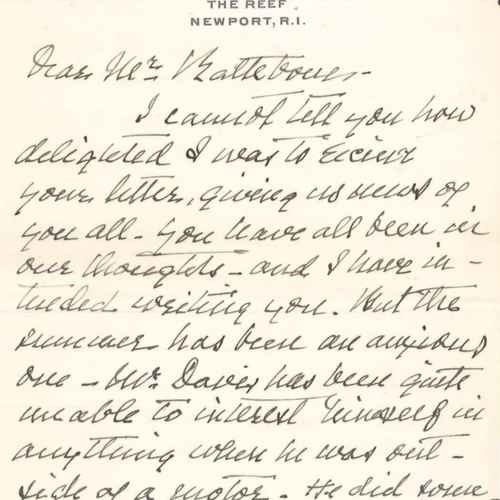 THE REEF
NEWPORT, R.I.
Dear Mr.
I cannot tell you how
delighted I was to receive
your letter, giving us news of
you all - you have all been in
our thoughts - and I have in-
tended writing you. But the
summer has been an anxious
one - Mr. Davis has been quite
unable to interest himself in
anything when he was out-
side of a motor. He did some